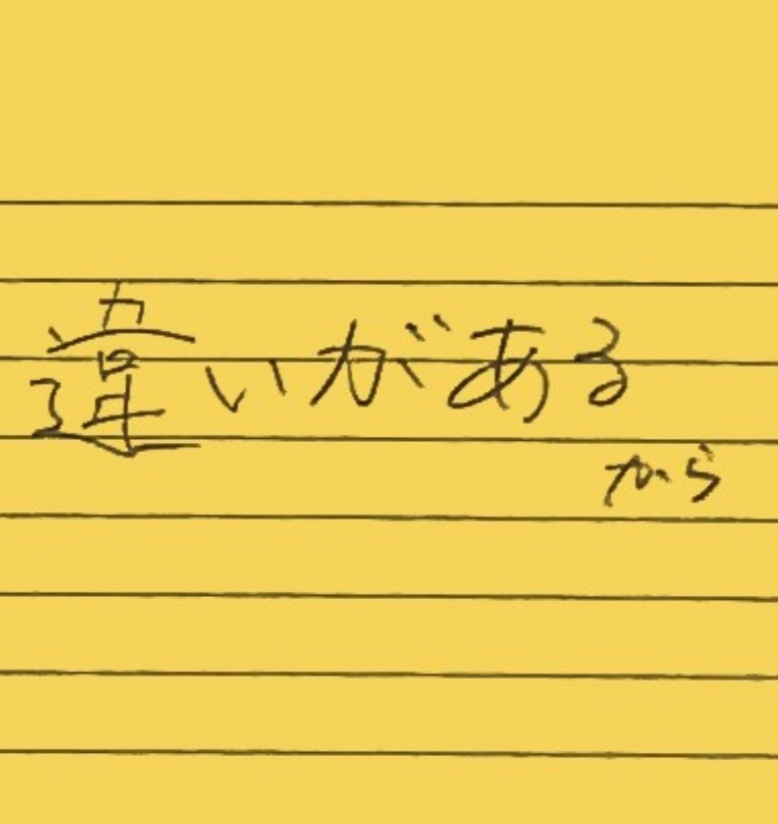 違いがある
から